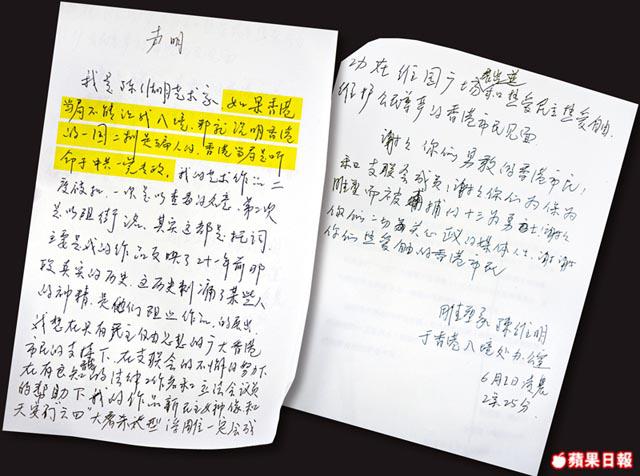 声明
我是陈维明艺术家 如果香港
当局不能让我入境,那就说明香港
的一国二制是骗人的,香港当局是听
命于中共一党专政。我的艺术作品二
度被扣,一次是以查看的名意,第二次
是以阻街论,其实这都是托词,
主要是我的作品反映了二十一年前那
段真实的历史,这历史刺痛了某些人
的神精,是他们阻止作品的展出.
我想在具有民主自由思想的广大香港
市民的支持下,在支联会的不懈的努力下
在有良知的法律工作者和立法会议员
的帮助下,我的作品新民主女神像和
天安门"六四"大屠杀大型浮雕一定会成
功在维园广场和热爱民主热爱自由.
维护公民尊严的香港市民见面
谢谢你们勇敢的香港市民,
和支联会成员,谢谢你们为保为
雕塑而被捕的十三为勇士,谢谢
你们一切关心政的媒体人士,谢谢
你们热爱自由的香港市民
雕塑家 陈维明
于香港入境处办公室
6月2日凌晨
2点25分.
蘋果日報